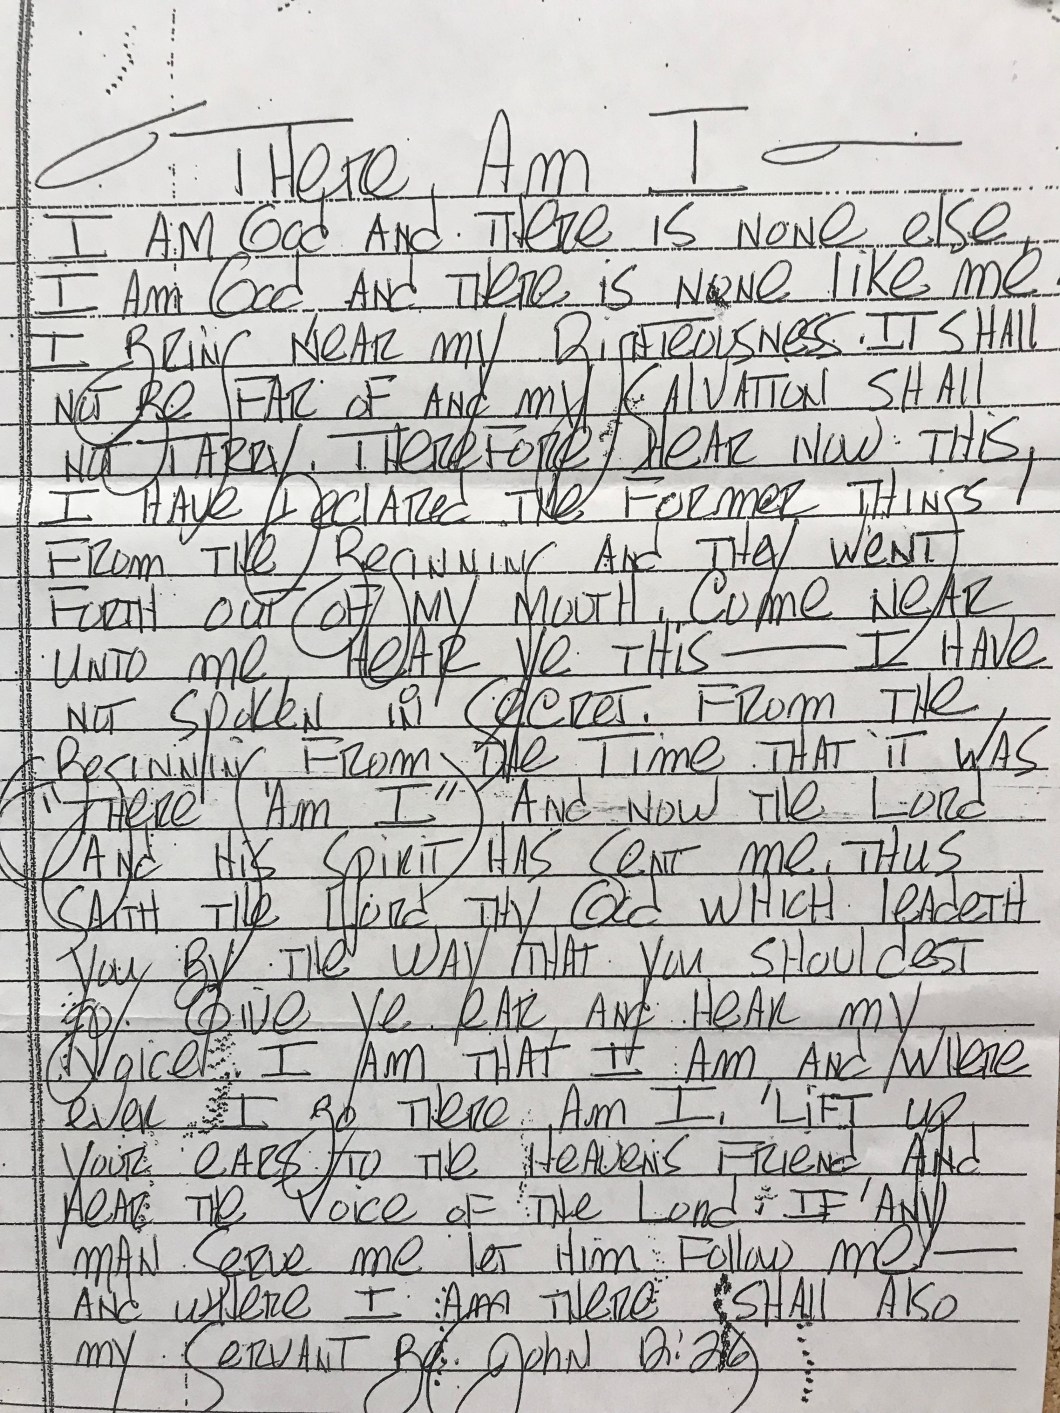 There Am I
I AM God AND THere is NONe else,
I Am God AND THere is NoNe like me.
I BRING NEAR my RigHTeousNess. IT SHAll
NOT Be FAR of AND my SAlVATION SHAll
NOT TARRY. THereFore, HEAR NOW THIS,
I HAVe DeClAReD THe FoRmeR THINGS!
FRom THe BeGINNING AND THey WeNT
FoRTH ouT oF MY MOUTH. Come NeAR
UNTo me HeAR Ye THIS — I HAVe
NOT spokeN iN SecReT. FRom THe
BeginNiNg FRom THe Time THAT iT WAS
"THere Am I" AND NOW THe LoRD
AND His SpiRiT HAS SeNT me. THUS
SAiTH THe Lord THY God WHICH leADeTH
You By THe WAY THAT You SHoulDesT
go. Give Ye eAR AND HeAR my
Voice. I Am THAT I Am AND WHere
eveR I go THeRe Am I. 'LiFT up
YouR eARs To THe HeaveNs FRieND AND
HeAR THe Voice oF THe LoRD. IF ANY
mAN SeRve me leT Him Follow me —
AND WHeRe I Am THeRe SHAll Also
my SeRVANT Be. JohN 12:26